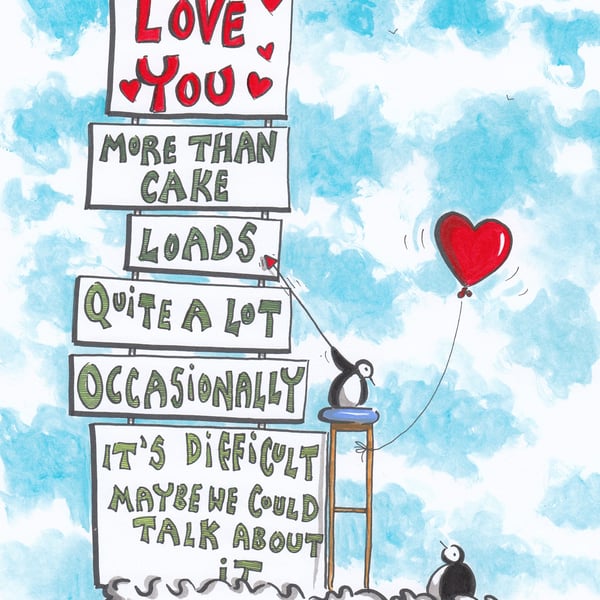 LOVE
YOU
MORE THAN
CAKE
LOADS
QUITE A LOT
OCCASIONALLY
IT'S DIFFICULT
MAYBE WE COULD
TALK ABOUT
IT